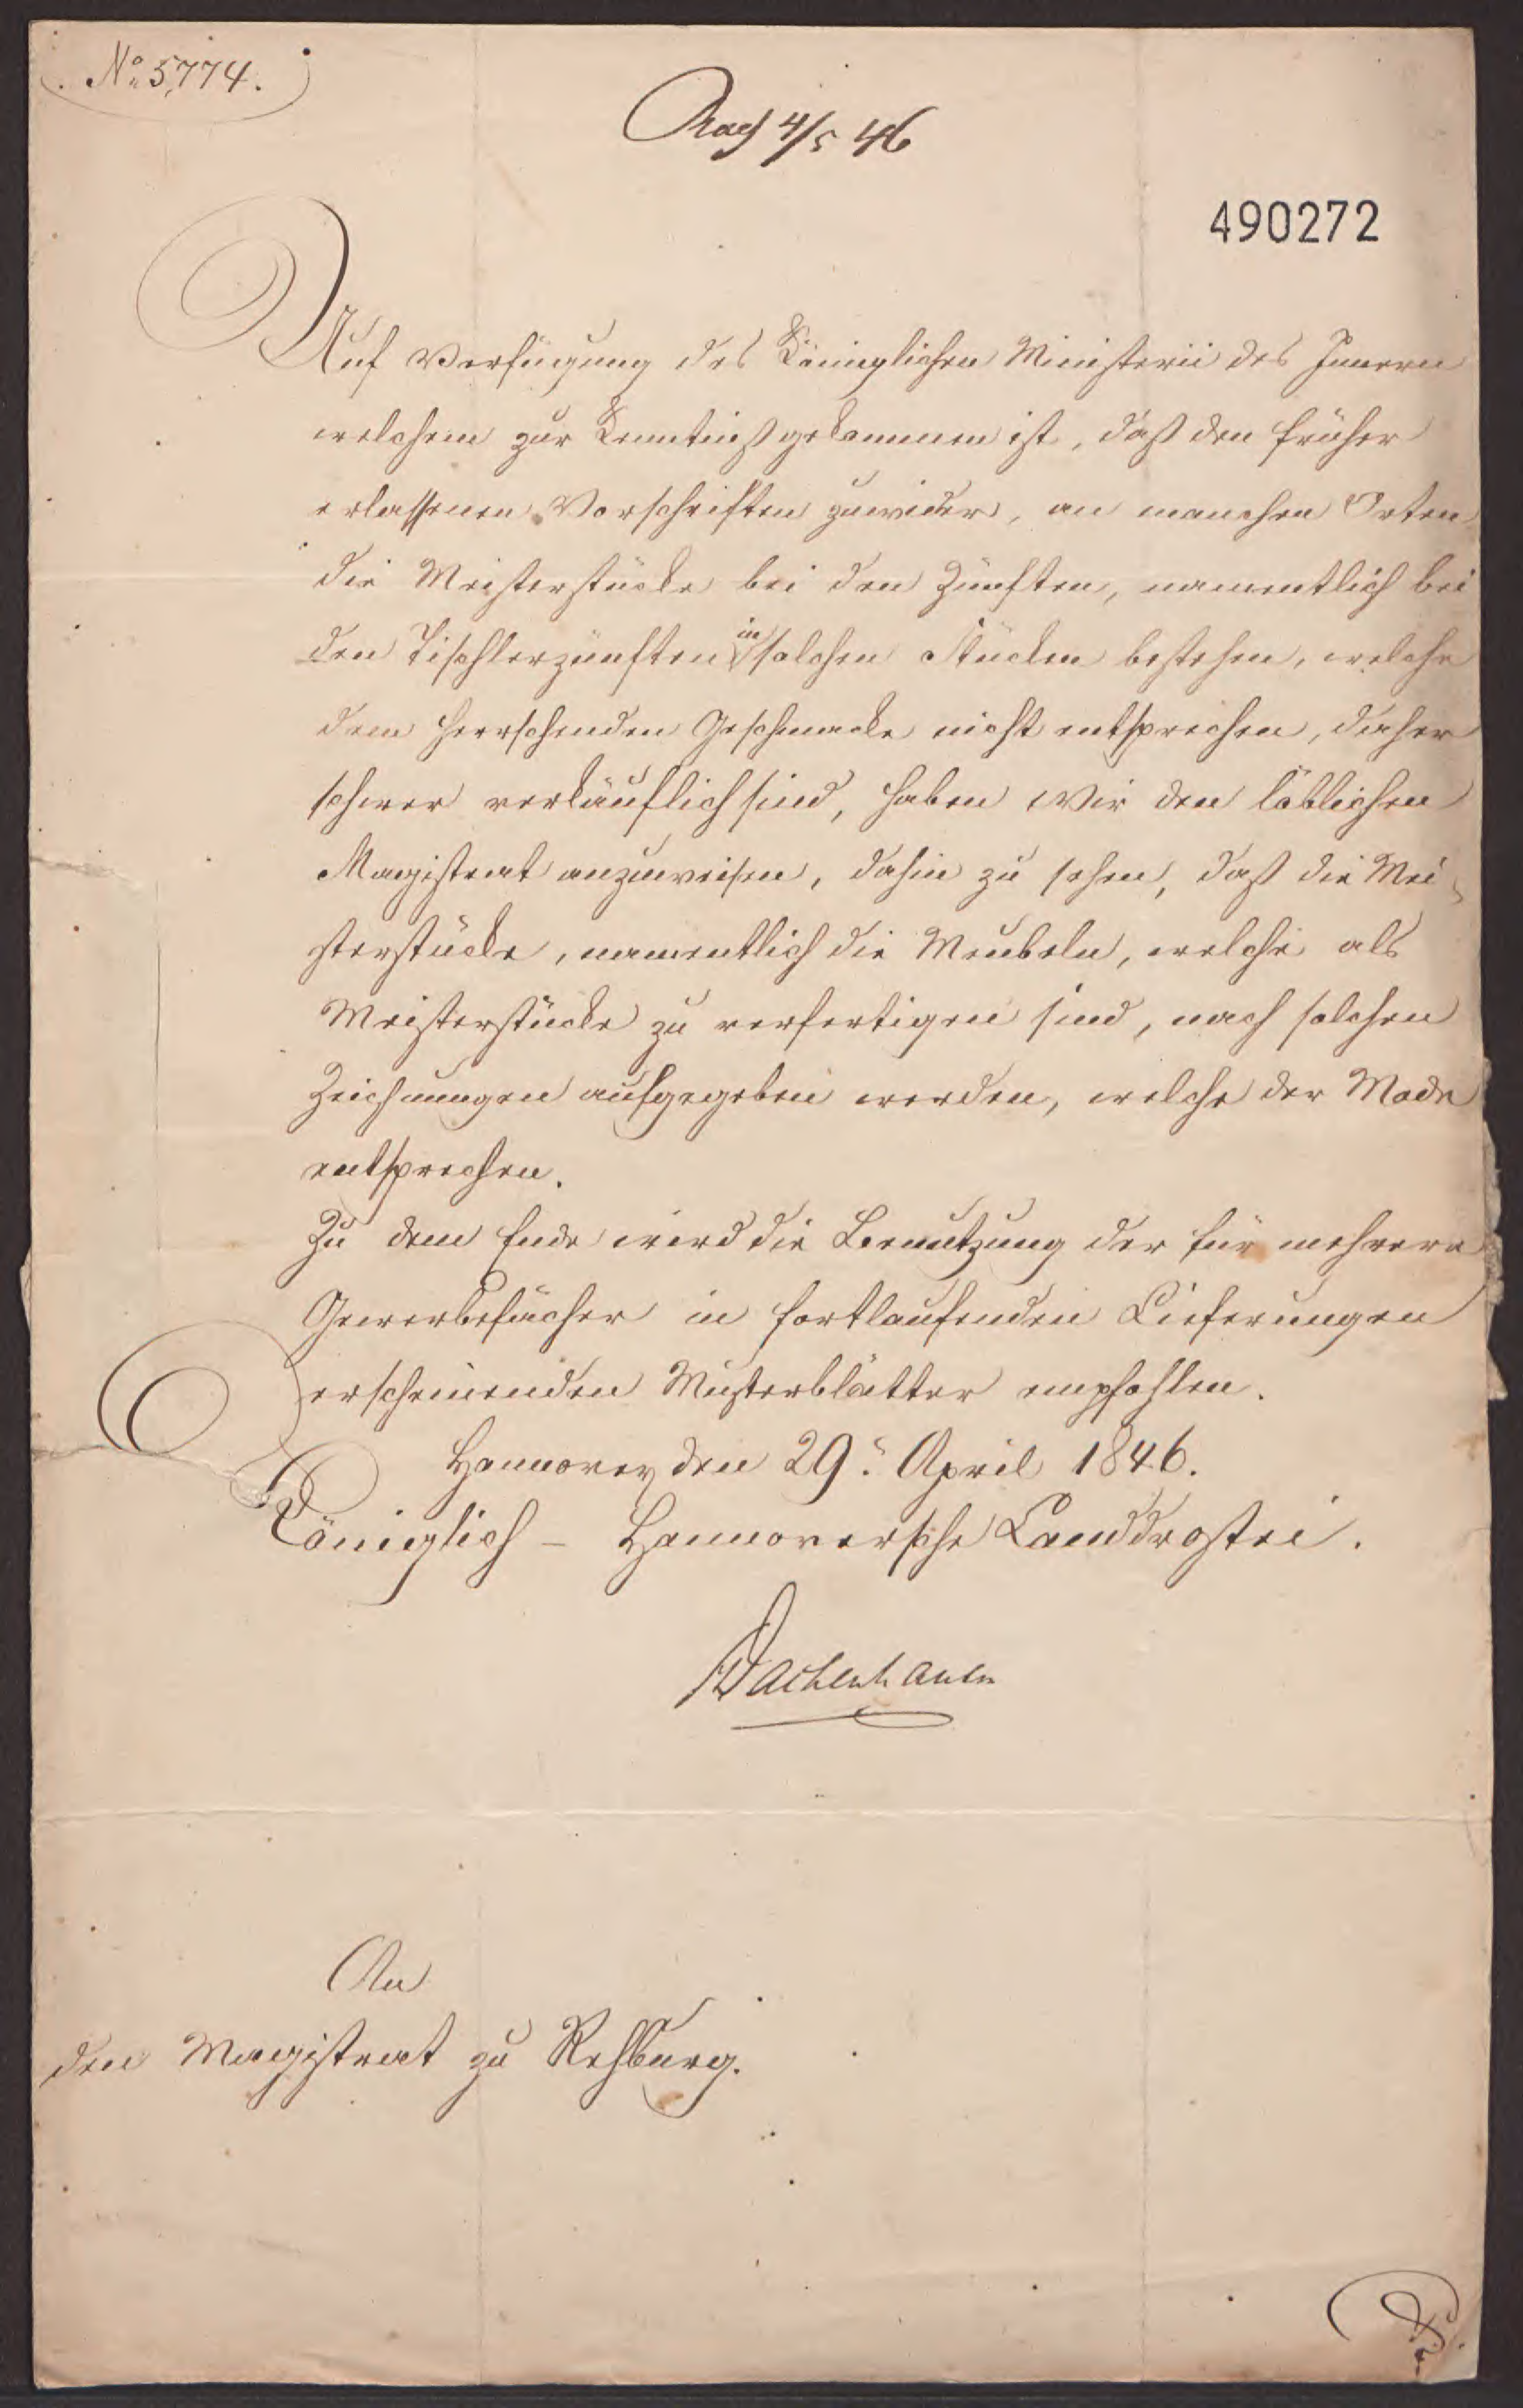 No 5,774.
4/5 46
490272
Auf Verfügung des Königlichen Ministerii des Innern
welchem zur Kenntniß gekommen ist, daß den früher
erlassenen Vorschriften zuwider, an manchen Orten
die Meisterstücke bei den Zünften, namentlich bei
den Tischlerzünften in solchen Stücken bestehen, welche
dem herrschenden Geschmacke nicht entsprechen, daher
schwer verkäuflich sind, haben Wir den löblichen
Magistrat anzuweisen, dahin zu sehen, daß die Mei-
sterstücke, namentlich die Meubeln, welche als
Meisterstücke zu verfertigen sind, nach solchen
Zeichnungen aufgegeben werden, welche der Mode
entsprechen.
Zu dem Ende wird die Benutzung der für mehrere
Gewerbefächer in fortlaufenden Lieferungen
erscheinenden Musterblätter empfohlen.
Hannover den 29. April 1846.
Königlich-Hannoversche Landdrostei.
Dachenhausen
An
den Magistrat zu Rehburg.